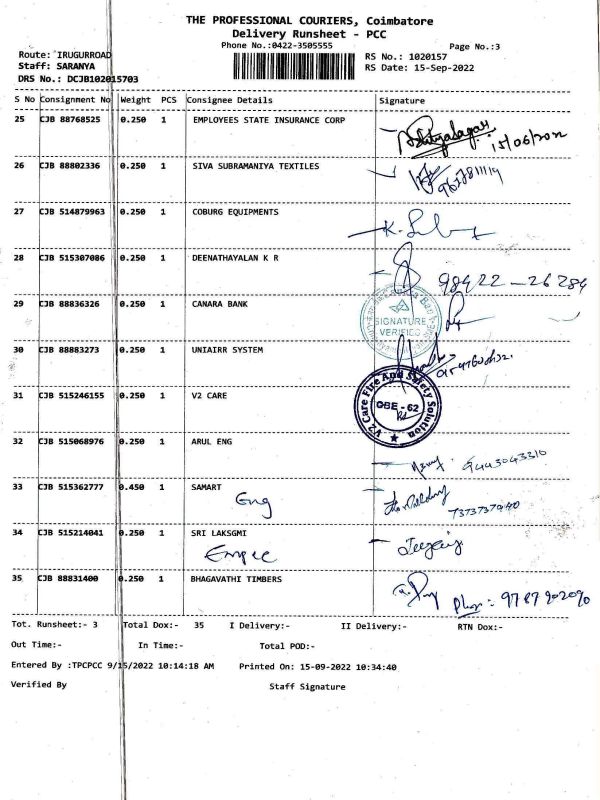 THE PROFESSIONAL COURIERS, Coimbatore
Delivery Runsheet - PCC
Phone No.:0422-3505555
Page No.:3
Route: IRUGURROAD
RS No.: 1020157
Staff: SARANYA
RS Date: 15-Sep-2022
DRS No.: DCJB102015703
S No Consignment No Weight PCS Consignee Details Signature
25 CJB 88768525 0.250 1 EMPLOYEES STATE INSURANCE CORP
15/06/2022
26 CJB 88802336 0.250 1 SIVA SUBRAMANIYA TEXTILES
27 CJB 514879963 0.250 1 COBURG EQUIPMENTS
28 CJB 515307086 0.250 1 DEENATHAYALAN K R
98422-26284
29 CJB 88836326 0.250 1 CANARA BANK
SIGNATURE
VERIFIED
30 CJB 88883273 0.250 1 UNIAIRR SYSTEM
31 CJB 515246155 0.250 1 V2 CARE
V2 Care Fire And Safety Solution
CBE - 62
32 CJB 515068976 0.250 1 ARUL ENG
9443043310
33 CJB 515362777 0.450 1 SAMART
Eng
7373737940
34 CJB 515214041 0.250 1 SRI LAKSGMI
35 CJB 88831400 0.250 1 BHAGAVATHI TIMBERS
Tot. Runsheet:- 3 Total Dox:- 35 I Delivery:- II Delivery:- RTN Dox:-
Out Time:- In Time:- Total POD:-
Entered By :TPCPCC 9/15/2022 10:14:18 AM Printed On: 15-09-2022 10:34:40
Verified By Staff Signature